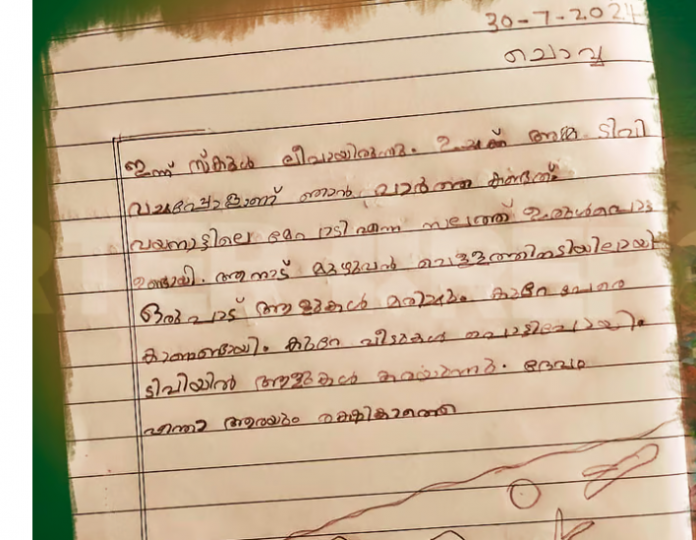 30-7-2024
ചൊവ്വ
ഇന്ന് സ്കൂൾ ലീവായിരുന്നു. ഉച്ചക്ക് അമ്മ ടിവി
വച്ചപ്പോളാണ് ഞാൻ വാർത്ത കണ്ടത്.
വയനാട്ടിലെ മേപ്പാടി എന്ന സലത്ത് ഉരുൾപൊട്ട
ഉണ്ടായി. ആനാട് മുഴുവൻ വെള്ളത്തിനടിയിലായി
ഒരുപാട് ആളുകൾ മരിച്ചു. കുറേ പേരെ
കാണാണ്ടായി. കുറേ വീടുകൾ പൊട്ടിപ്പോയി.
ടിവിയിൽ ആളുകൾ കരയുന്നു. ദൈവം
എന്താ ആരെയും രക്ഷിക്കാത്തെ